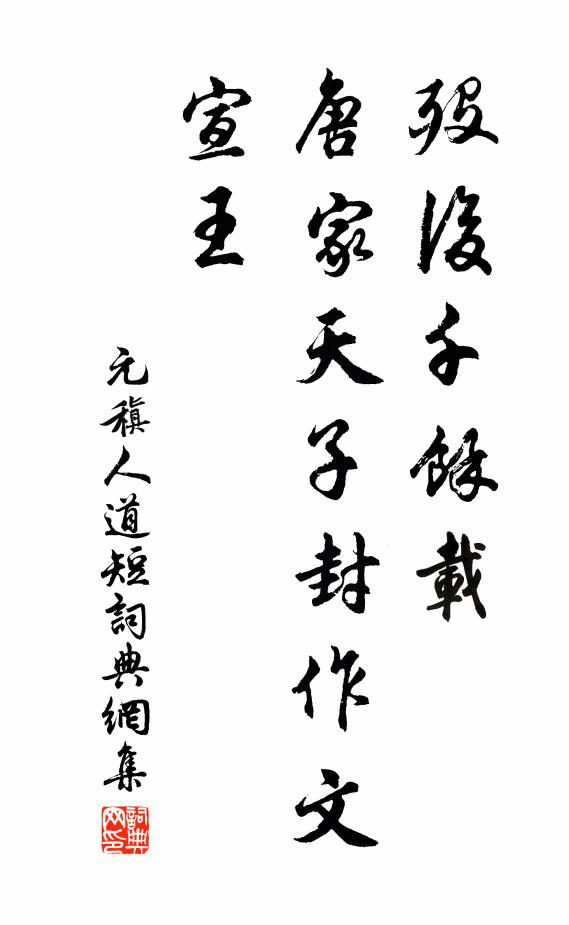 殁後千餘載
唐家天子封作文
宣王
元稹人道短詞典網集
詞典
网印